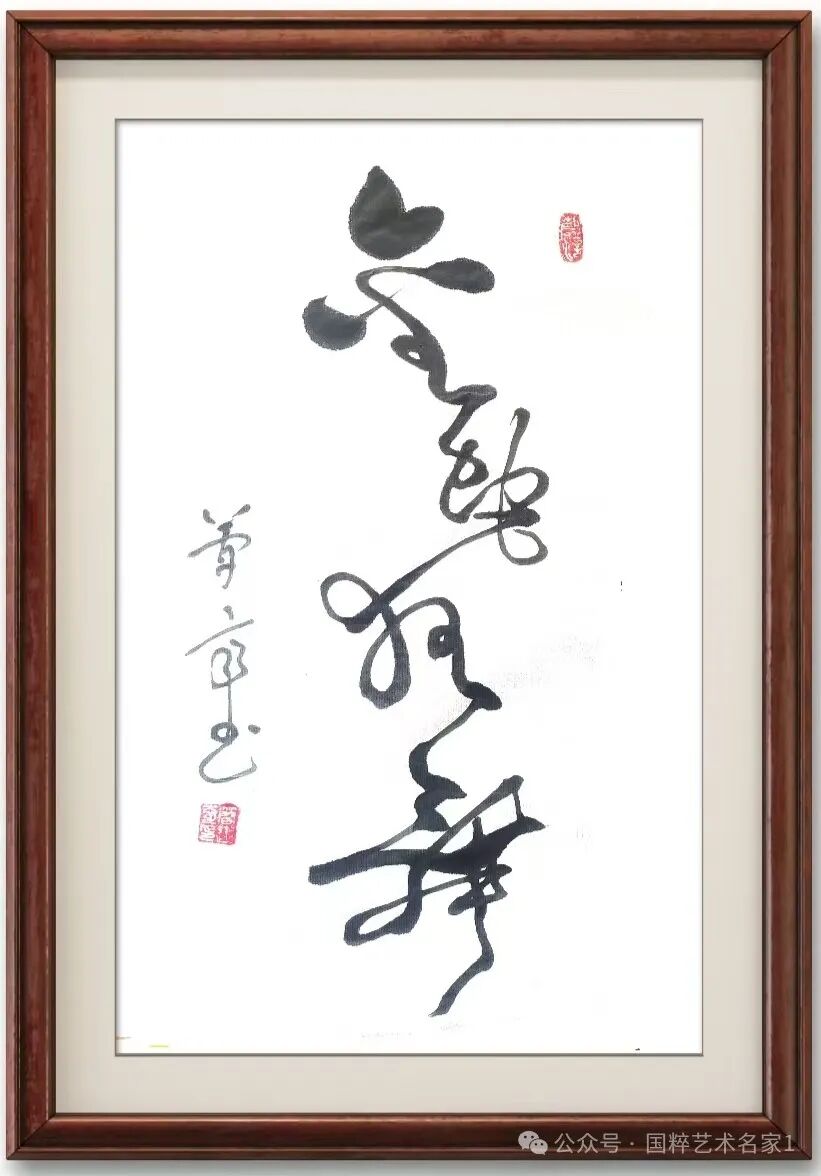 金蛇狂舞
书
公众号 · 国粹艺术名家1